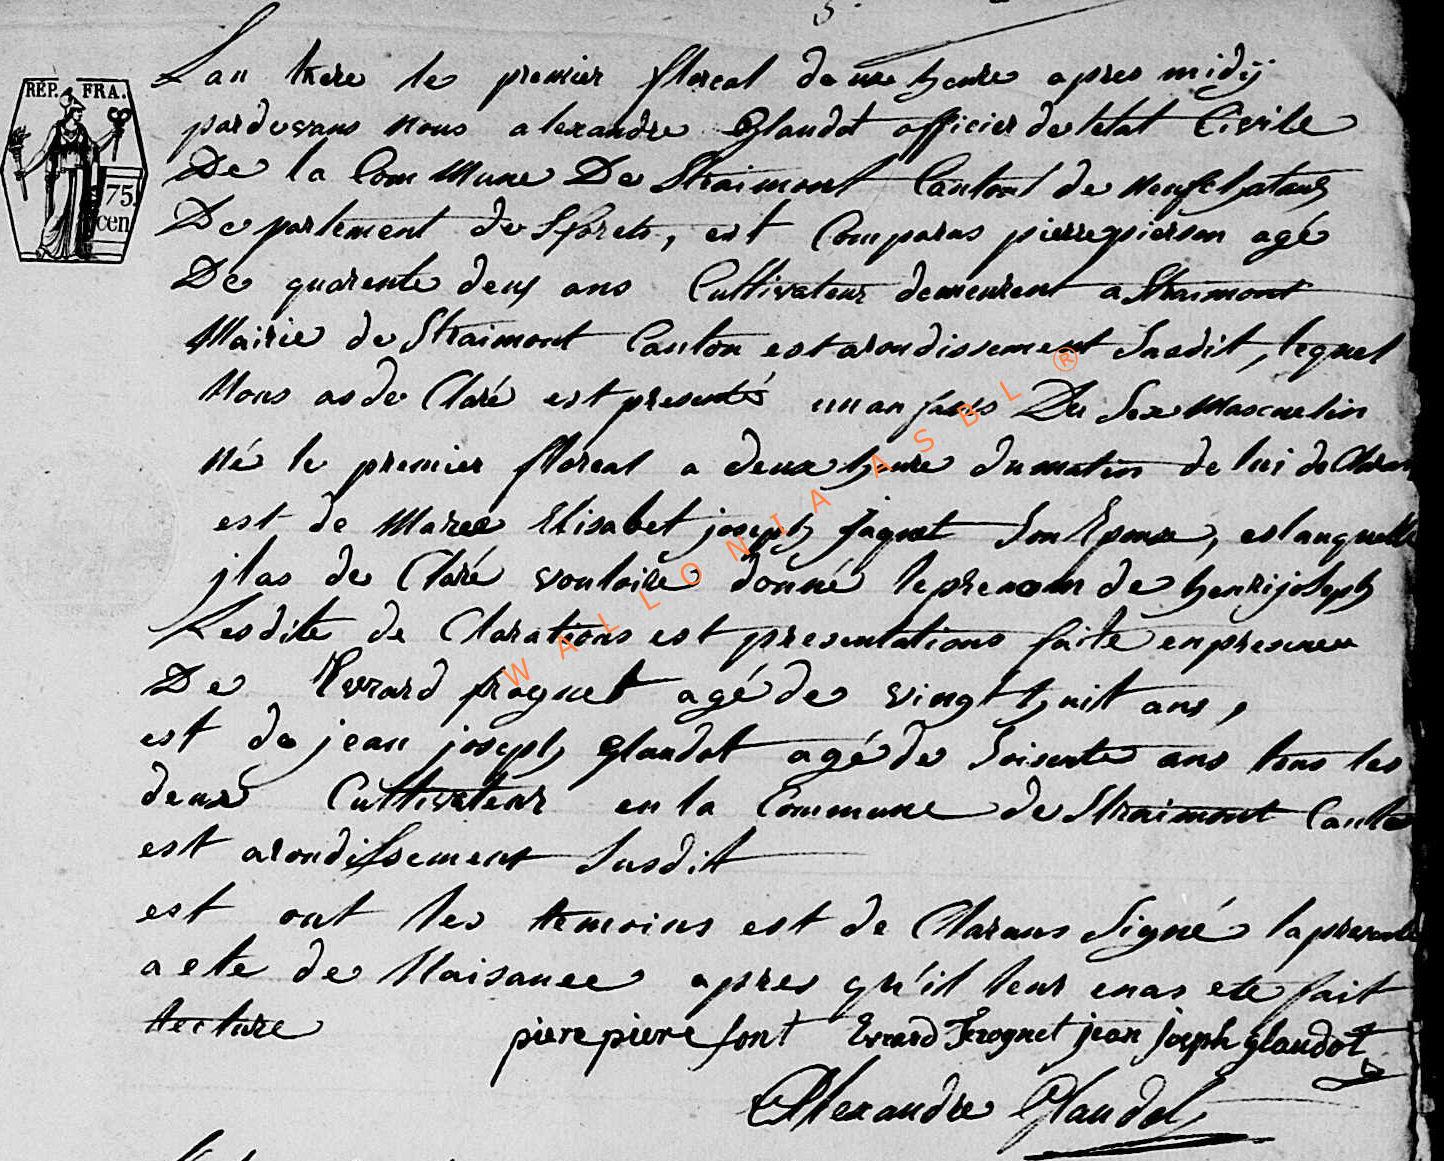 L'an treze le premier floreal deuxe heure apres midÿ
pardevans Nous alexandre Glaudot officier de letat Civile
De la Commune De Straimont Canton de Neufchataux
De partement de Sforets, est Comparus pierre pierson agé
De quarente deux ans Cultivateur demeurent a Straimont
Mairie de Straimont Canton est arondissement Susdit, lequel
Nous as de Claré est presenté un anfans Du Sexe Mascuelin
né le premier floreal a deuxe heure du matin de lui de Clarans
est de Marie Elisabet joseph Jaquet Son Epouse, es lauquelle
jl as de Claré vouloire donné le prenom de henrij joseph
Lesdite de Clarations est presentations faite en presence
De Evrard frognet agé de vingt huit ans,
est de jean joseph glaudot agé de Soisente ans tous les
deux Cultivateur en la Commune de Straimont Canton
est arondissement Susdit
est ont les temoins est de Clarans Signé la presente
acte de Naisance apres qu'il leur en as ete fait
lecture pierre pierre font Evrard Frognet jean joseph glaudot
Alexandre Glaudot
RÉP. FRA.
75
cen
WALLONIA ASBL ®